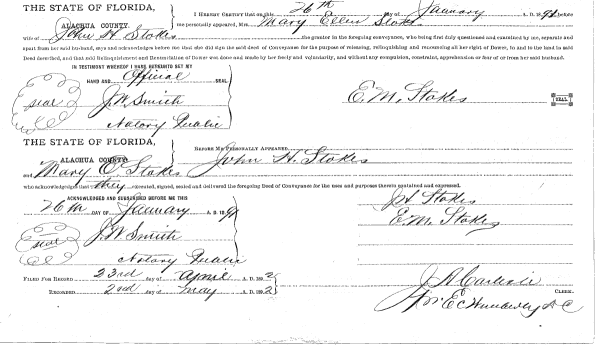 THE STATE OF FLORIDA,
ALACHUA COUNTY.
I HEREBY CERTIFY that on this 26th day of January 1891 before
me personally appeared, Mrs. Mary Ellen Stokes
wife of John H. Stokes the grantor in the foregoing conveyance, who being first duly questioned and examined by me, separate and
apart from her said husband, says and acknowledges before me that she did sign the said deed of Conveyance for the purpose of releasing, relinquishing and renouncing all her right of Dower, in and to the land in said
Deed described, and that said Relinquishment and Renunciation of Dower was done and made by her freely and voluntarily, and without any compulsion, constraint, apprehension or fear of or from her said husband.
IN TESTIMONY WHEREOF I HAVE HEREUNTO SET MY
HAND AND Official SEAL
seal J. W. Smith
Notary Public
E. M. Stokes SEAL
THE STATE OF FLORIDA,
ALACHUA COUNTY.
BEFORE ME PERSONALLY APPEARED John H. Stokes
and Mary E. Stokes
who acknowledges that they executed, signed, sealed and delivered the foregoing Deed of Conveyance for the uses and purposes therein contained and expressed.
ACKNOWLEDGED AND SUBSCRIBED BEFORE ME THIS
26th DAY OF January A. D. 1891
J H Stokes
E. M. Stokes
seal J. W Smith
Notary Public
FILED FOR RECORD 23rd day of April A. D. 1892
RECORDED 2nd day of May A. D. 1892
J. A. Carlisle CLERK.
D C